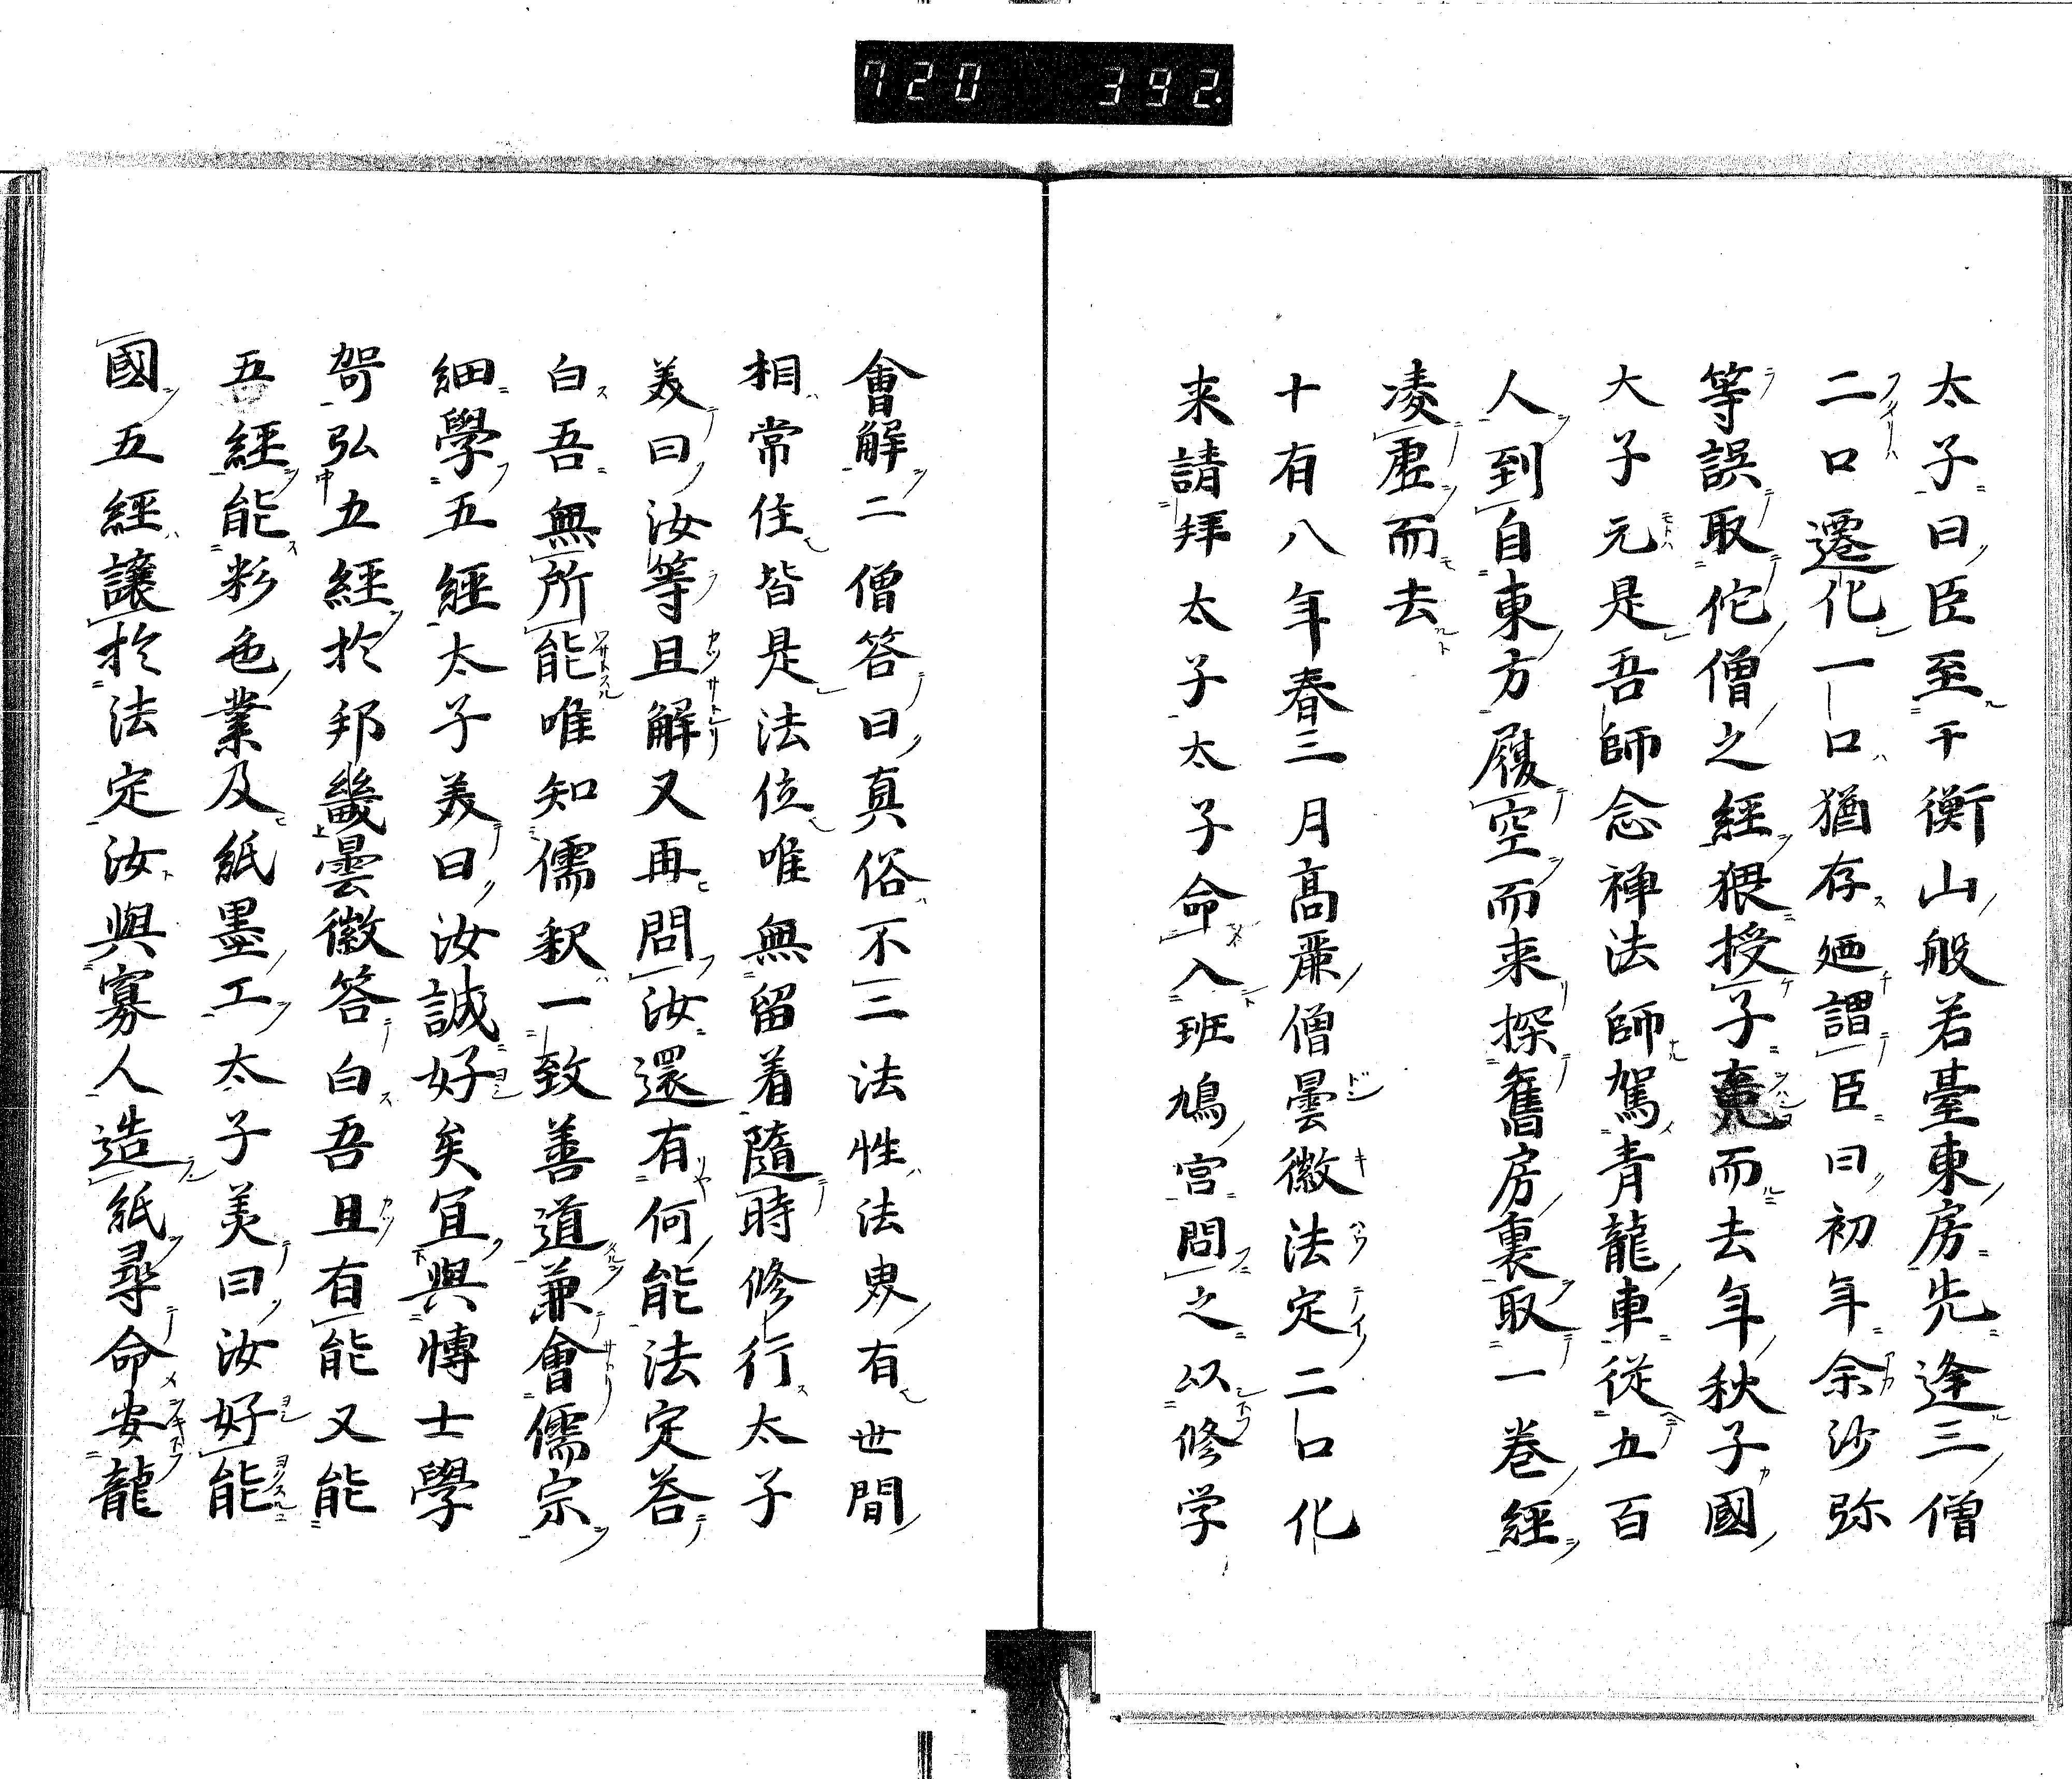 720 392.
太子曰臣至于衡山般若臺東房先逢三僧
二口遷化一口猶存廼謂臣曰初年余沙弥
等誤取佗僧之經猥授子賷而去年秋子國
大子元是吾師念禅法師駕青龍車從五百
人到自東方履空而来探舊房裏取一巻經
凌虚而去
十有八年春三月高麗僧曇徴法定二口化
来請拝太子太子命入班鳩宮問之以修学
會解二僧答曰真俗不二法性法界有世間
相常住皆是法位唯無留着隨時修行太子
美曰汝等且解又再問汝還有何能法定荅
白吾無所能唯知儒釈一致善道兼會儒宗
細學五經太子美曰汝誠好矣宜與博士學
哿弘五經於邦畿曇徴答白吾且有能又能
五經能彩色業及紙墨工太子美曰汝好能
國五經譲於法定汝與寡人造紙尋命安龍